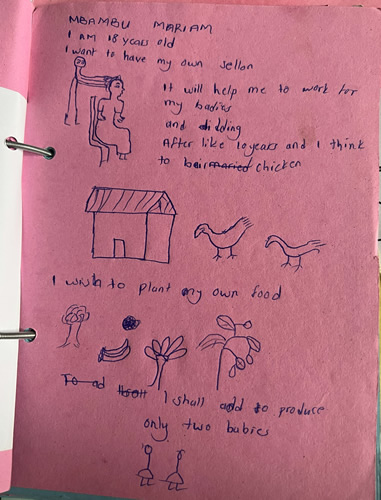 MBAMBU MARIAM
I AM 18 years old
I want to have my own sellon
It will help me to work for
my babies
and didding
After like 10years and I think
to chicken
I wish to plant my own food
I shall add to produce
only two babies